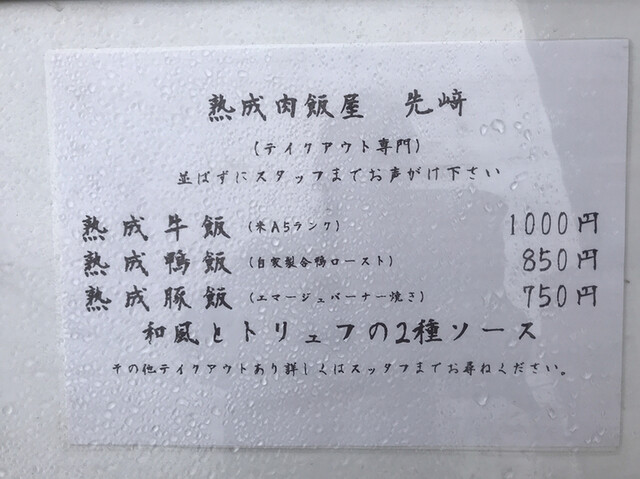 熟成肉飯屋 先﨑
(テイクアウト専門)
並ばずにスタッフまでお声がけ下さい
熟成牛飯(米A5ランク) 1000円
熟成鴨飯(自家製合鴨ロースト) 850円
熟成豚飯(エマージュバーナー焼き) 750円
和風とトリュフの2種ソース
その他テイクアウトあり詳しくはスッタフまでお尋ねください。